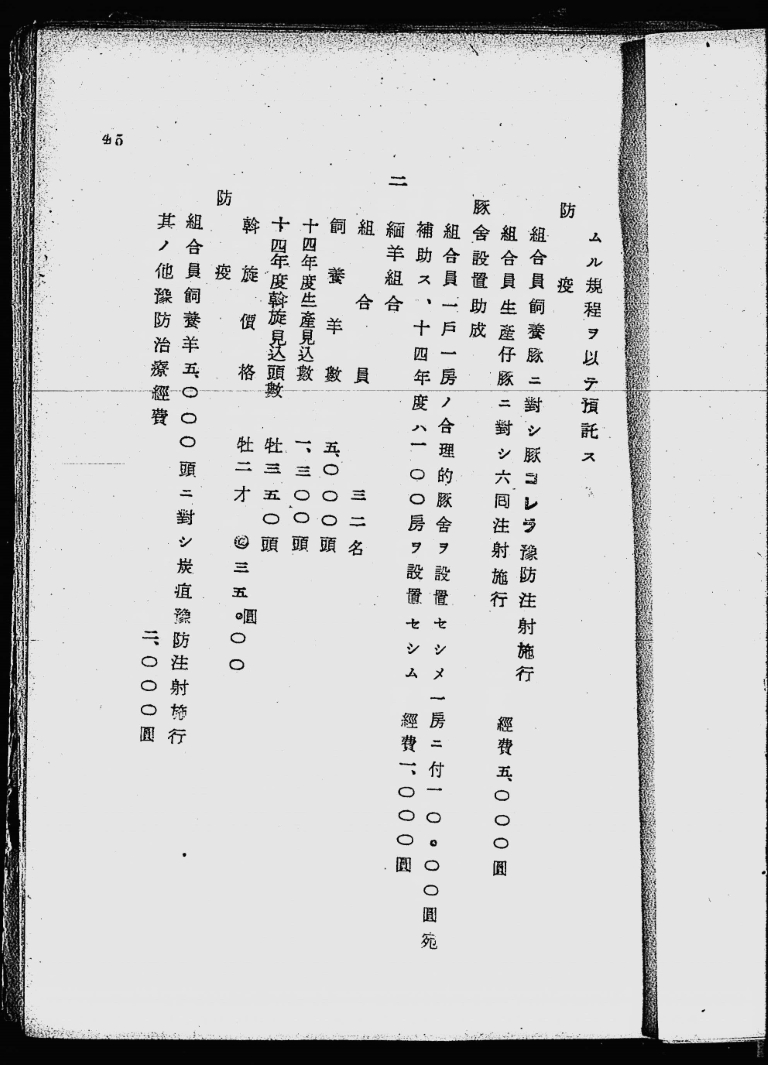 ムル規程ヲ以テ預託ス
防疫
組合員飼養豚ニ對シ豚コレラ豫防注射施行
組合員生產仔豚ニ對シ六同注射施行　經費五、〇〇〇圓
豚舍設置助成
組合員一戶一房ノ合理的豚舍ヲ設置セシメ一房ニ付一〇。〇〇圓宛
補助ス、十四年度ハ一〇〇房ヲ設置セシム　經費一、〇〇〇圓
二　緬羊組合
組合員　三二名
飼養羊數　五、〇〇〇頭
十四年度生產見込數　一、三〇〇頭
十四年度斡旋見込頭數　牡三五〇頭
斡旋價格　牡二才　@三五。〇〇圓
防疫
組合員飼養羊五、〇〇〇頭ニ對シ炭疽豫防注射施行
其ノ他豫防治療經費　二、〇〇〇圓
45